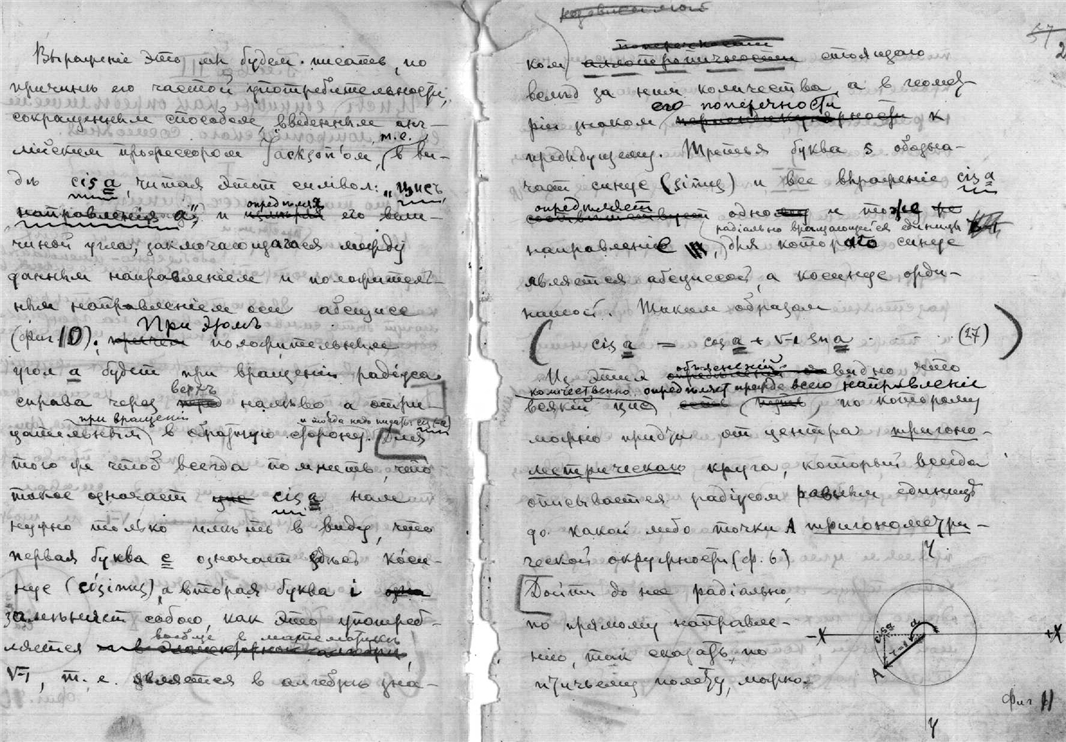 Выраженіе это мы будем писать, по
причинѣ его частой употребительности,
сокращенным способом введенным ан-
глійским профессором Jackson'ом, т.е. в ви-
дѣ cis a читая этот символ: "цис
направленія а", и опредѣляя его вели-
чиной угла, заключающагося между
данным направленіем и положитель-
ным направленіем оси абсцисс
(фиг 10). При этомъ положительным
угол a будет при вращеніи радіуса
справа через верхъ налѣво а отри-
цательным при вращеніи в обратную сторону. Для
того же чтоб всегда помнить, что
такое означает cis a нам
нужно только имѣть в виду, что
первая буква c означает здѣсь коси-
нус (cosinus), а вторая буква i
замѣняет собою, как это употреб-
ляется вообще в математикѣ,
√-1, т. е. является в алгебрѣ зна-
57
2
ком стоящаго
вслѣд за ним количества, а в геомет-
ріи знаком его поперечности к
предыдущему. Третья буква s обозна-
чает синус (sinus) и все выраженіе cis a
опредѣляет одно и то же
направленіе радіально вращающейся единицы, для котораго синус
является абсциссой, а косинус орди-
натой. Таким образом
(cis a = cos a + √-1 sin a . . . . (17))
Из этих объясненій видно что
всякій цис количественно опредѣляет прежде всего направленіе, по которому
можно придти от центра тригоно-
метрическаго круга, который всегда
описывается радіусом равным единицѣ
до какой либо точки А тригонометри-
ческой окружности (ф. 6)
Дойти до нея радіально,
по прямому направле-
нію, так сказать, по
птичьему полету, можно
У
-Х
+Х
cis a
a
А
У
Фиг 11